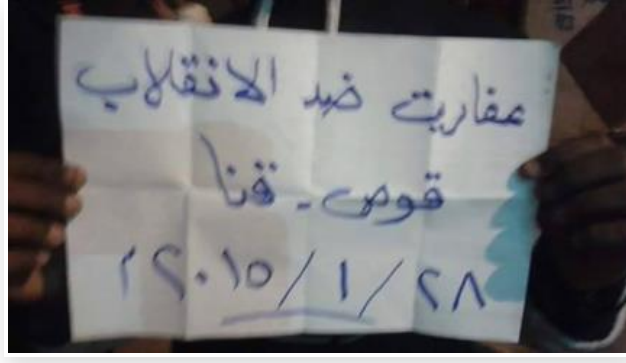 عفاريت ضد الانقلاب
قوص - قنا
٢٨/١/٢٠١٥م